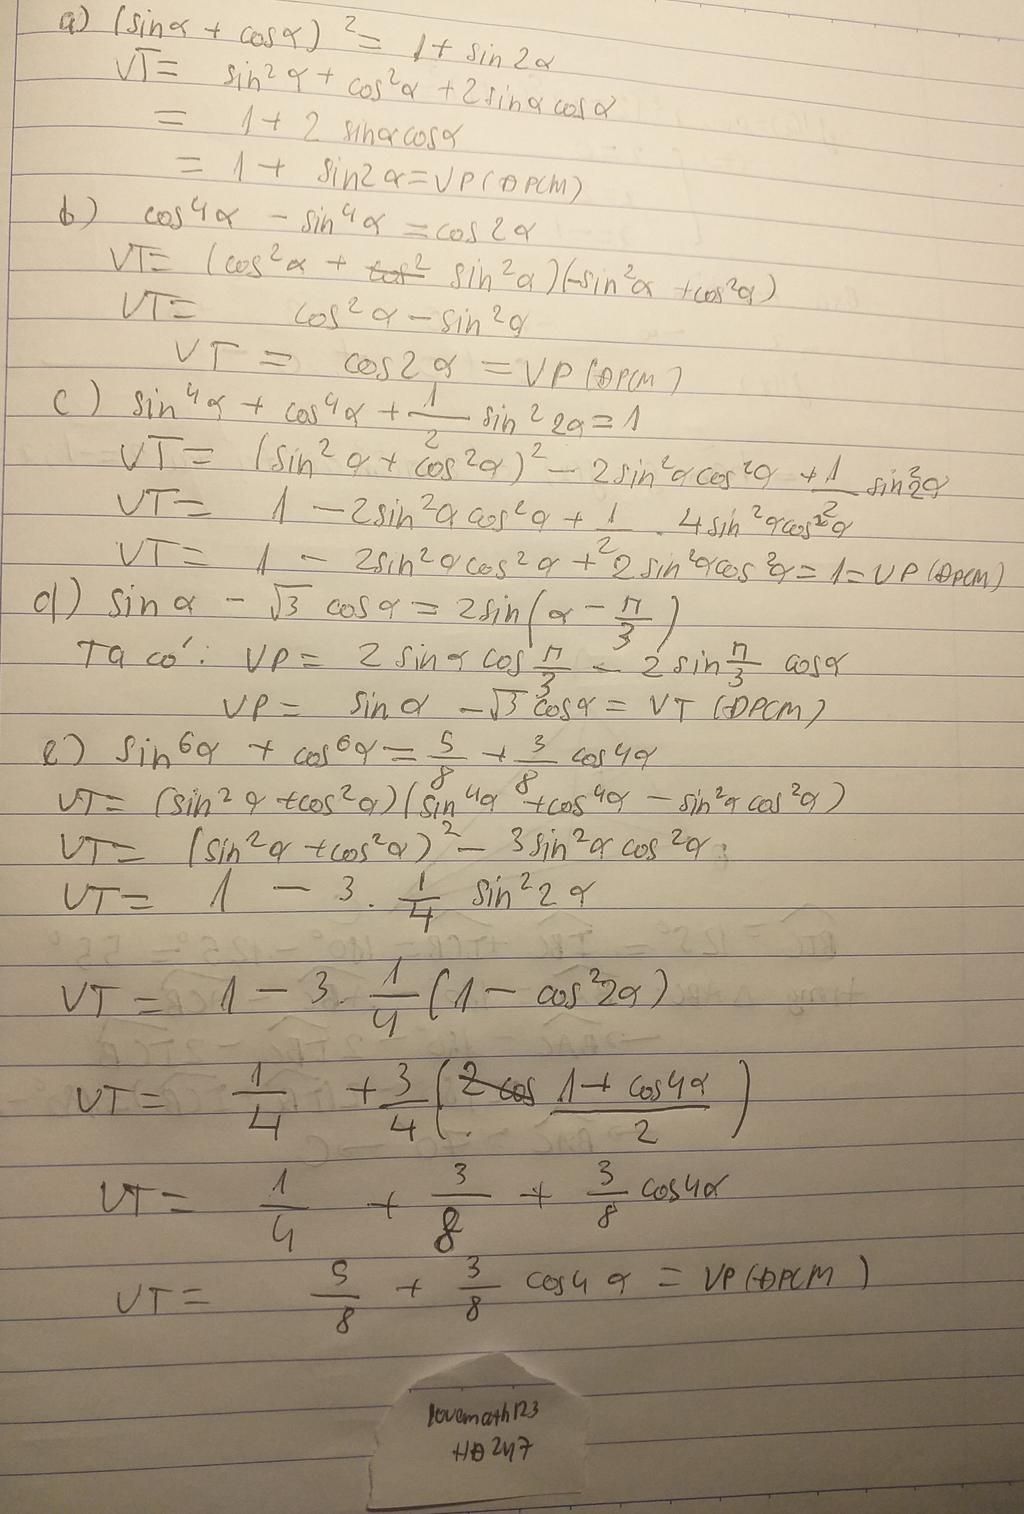 a) (sinα + cosα)² = 1 + sin2α
VT = sin²α + cos²α + 2sinαcosα
= 1 + 2 sinαcosα
= 1 + sin2α = VP (ĐPCM)
b) cos⁴α - sin⁴α = cos2α
VT = (cos²α + sin²α)(-sin²α + cos²α)
VT = cos²α - sin²α
VT = cos2α = VP (ĐPCM)
c) sin⁴α + cos⁴α + 1/2 sin²2α = 1
VT = (sin²α + cos²α)² - 2sin²αcos²α + 1/2 sin²2α
VT = 1 - 2sin²αcos²α + 1/2 . 4sin²αcos²α
VT = 1 - 2sin²αcos²α + 2sin²αcos²α = 1 = VP (ĐPCM)
d) sinα - √3 cosα = 2sin(α - π/3)
Ta có: VP = 2 sinα cos π/3 - 2 sin π/3 cosα
VP = sinα - √3 cosα = VT (ĐPCM)
e) sin⁶α + cos⁶α = 5/8 + 3/8 cos4α
VT = (sin²α + cos²α)(sin⁴α + cos⁴α - sin²αcos²α)
VT = (sin²α + cos²α)² - 3sin²αcos²α
VT = 1 - 3. 1/4 sin²2α
VT = 1 - 3. 1/4 (1 - cos²2α)
VT = 1/4 + 3/4 ( (1 + cos4α)/2 )
VT = 1/4 + 3/8 + 3/8 cos4α
VT = 5/8 + 3/8 cos4α = VP (ĐPCM)
lovemath123
HĐ247